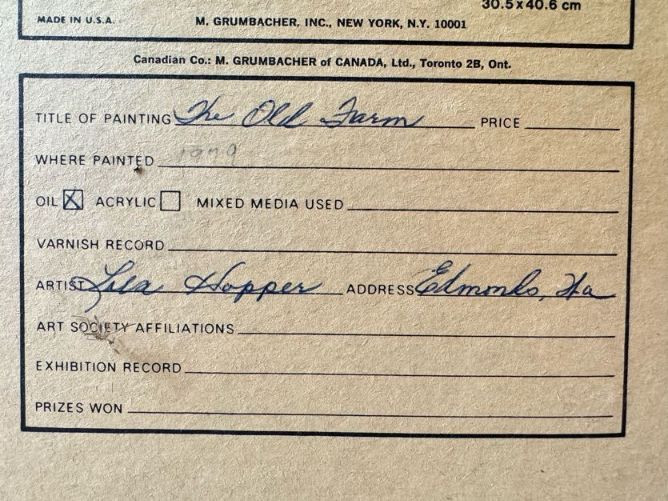 30.5x40.6 cm
MADE IN U.S.A. M. GRUMBACHER, INC., NEW YORK, N.Y. 10001
Canadian Co.: M. GRUMBACHER of CANADA, Ltd., Toronto 2B, Ont.
TITLE OF PAINTING The Old Farm PRICE
WHERE PAINTED 1979
OIL X ACRYLIC MIXED MEDIA USED
VARNISH RECORD
ARTIST Lila Hopper ADDRESS Edmonds, Wa
ART SOCIETY AFFILIATIONS
EXHIBITION RECORD
PRIZES WON